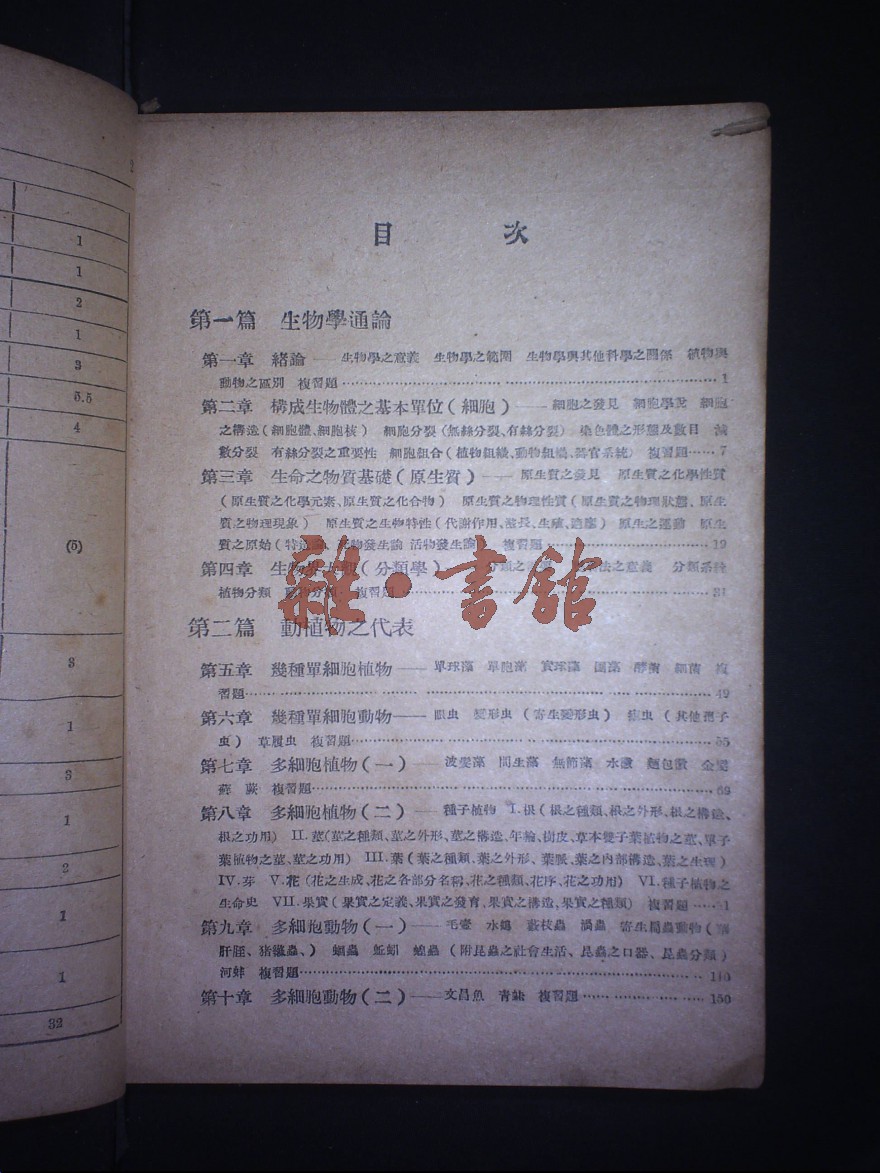 1
1
2
1
3
5.5
4
(5)
3
1
3
1
2
1
1
32
目 次
第一篇 生物學通論
第一章 緒論——生物學之意義 生物學之範圍 生物學與其他科學之關係 植物與
動物之區別 複習題……1
第二章 構成生物體之基本單位(細胞)——細胞之發見 細胞學說 細胞
之構造(細胞體、細胞核) 細胞分裂(無絲分裂、有絲分裂) 染色體之形態及數目 減
數分裂 有絲分裂之重要性 細胞組合(植物組織、動物組織、器官系統) 複習題……7
第三章 生命之物質基礎(原生質)——原生質之發見 原生質之化學性質
(原生質之化學元素、原生質之化合物) 原生質之物理性質(原生質之物理狀態、原生
質之物理現象) 原生質之生物特性(代謝作用、滋長、生殖、適應) 原生之運動 原生
質之原始(特造論、生物發生論 活物發生論) 複習題……19
第四章 生物 (分類學)——分類之 法之意義 分類系統
植物分類 動物分類 複習題……31
雜·書館
第二篇 動植物之代表
第五章 幾種單細胞植物——單球藻 單胞藻 實球藻 團藻 酵菌 細菌 複
習題……49
第六章 幾種單細胞動物——眼虫 變形虫(寄生變形虫) 瘧虫(其他孢子
虫) 草履虫 複習題……55
第七章 多細胞植物(一)——波斐藻 間生藻 無節藻 水黴 麵包黴 金髮
蘚 蕨 複習題……69
第八章 多細胞植物(二)——種子植物 I.根(根之種類、根之外形、根之構造、
根之功用) II.莖(莖之種類、莖之外形、莖之構造、年輪、樹皮、草本雙子葉植物之莖、單子
葉植物之莖、莖之功用) III.葉(葉之種類、葉之外形、葉脈、葉之內部構造、葉之生理)
IV.芽 V.花(花之生成、花之各部分名稱、花之種類、花序、花之功用) VI.種子植物之
生命史 VII.果實(果實之定義、果實之發育、果實之構造、果實之種類) 複習題……1
第九章 多細胞動物(一)——毛壺 水螅 藪枝蟲 渦蟲 寄生扁蟲動物(
肝胵、猪縧蟲、) 蛔蟲 蚯蚓 蝗蟲(附昆蟲之社會生活、昆蟲之口器、昆蟲分類)
河蚌 複習題……110
第十章 多細胞動物(二)——文昌魚 青蛙 複習題……150